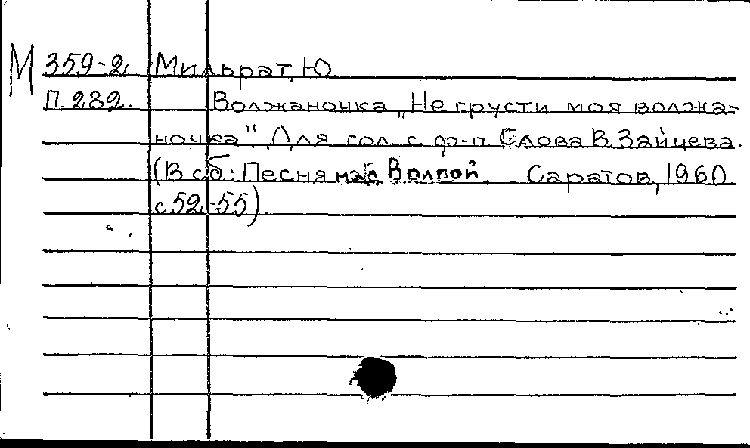 М 359-2. Мильрат, Ю
П. 282. Волжаночка „Не грусти моя волжа-
ночка" Для гол. с ф-п Слова В. Зайцева.
(В сб: Песня над Волгой Саратов, 1960
с. 52-55).